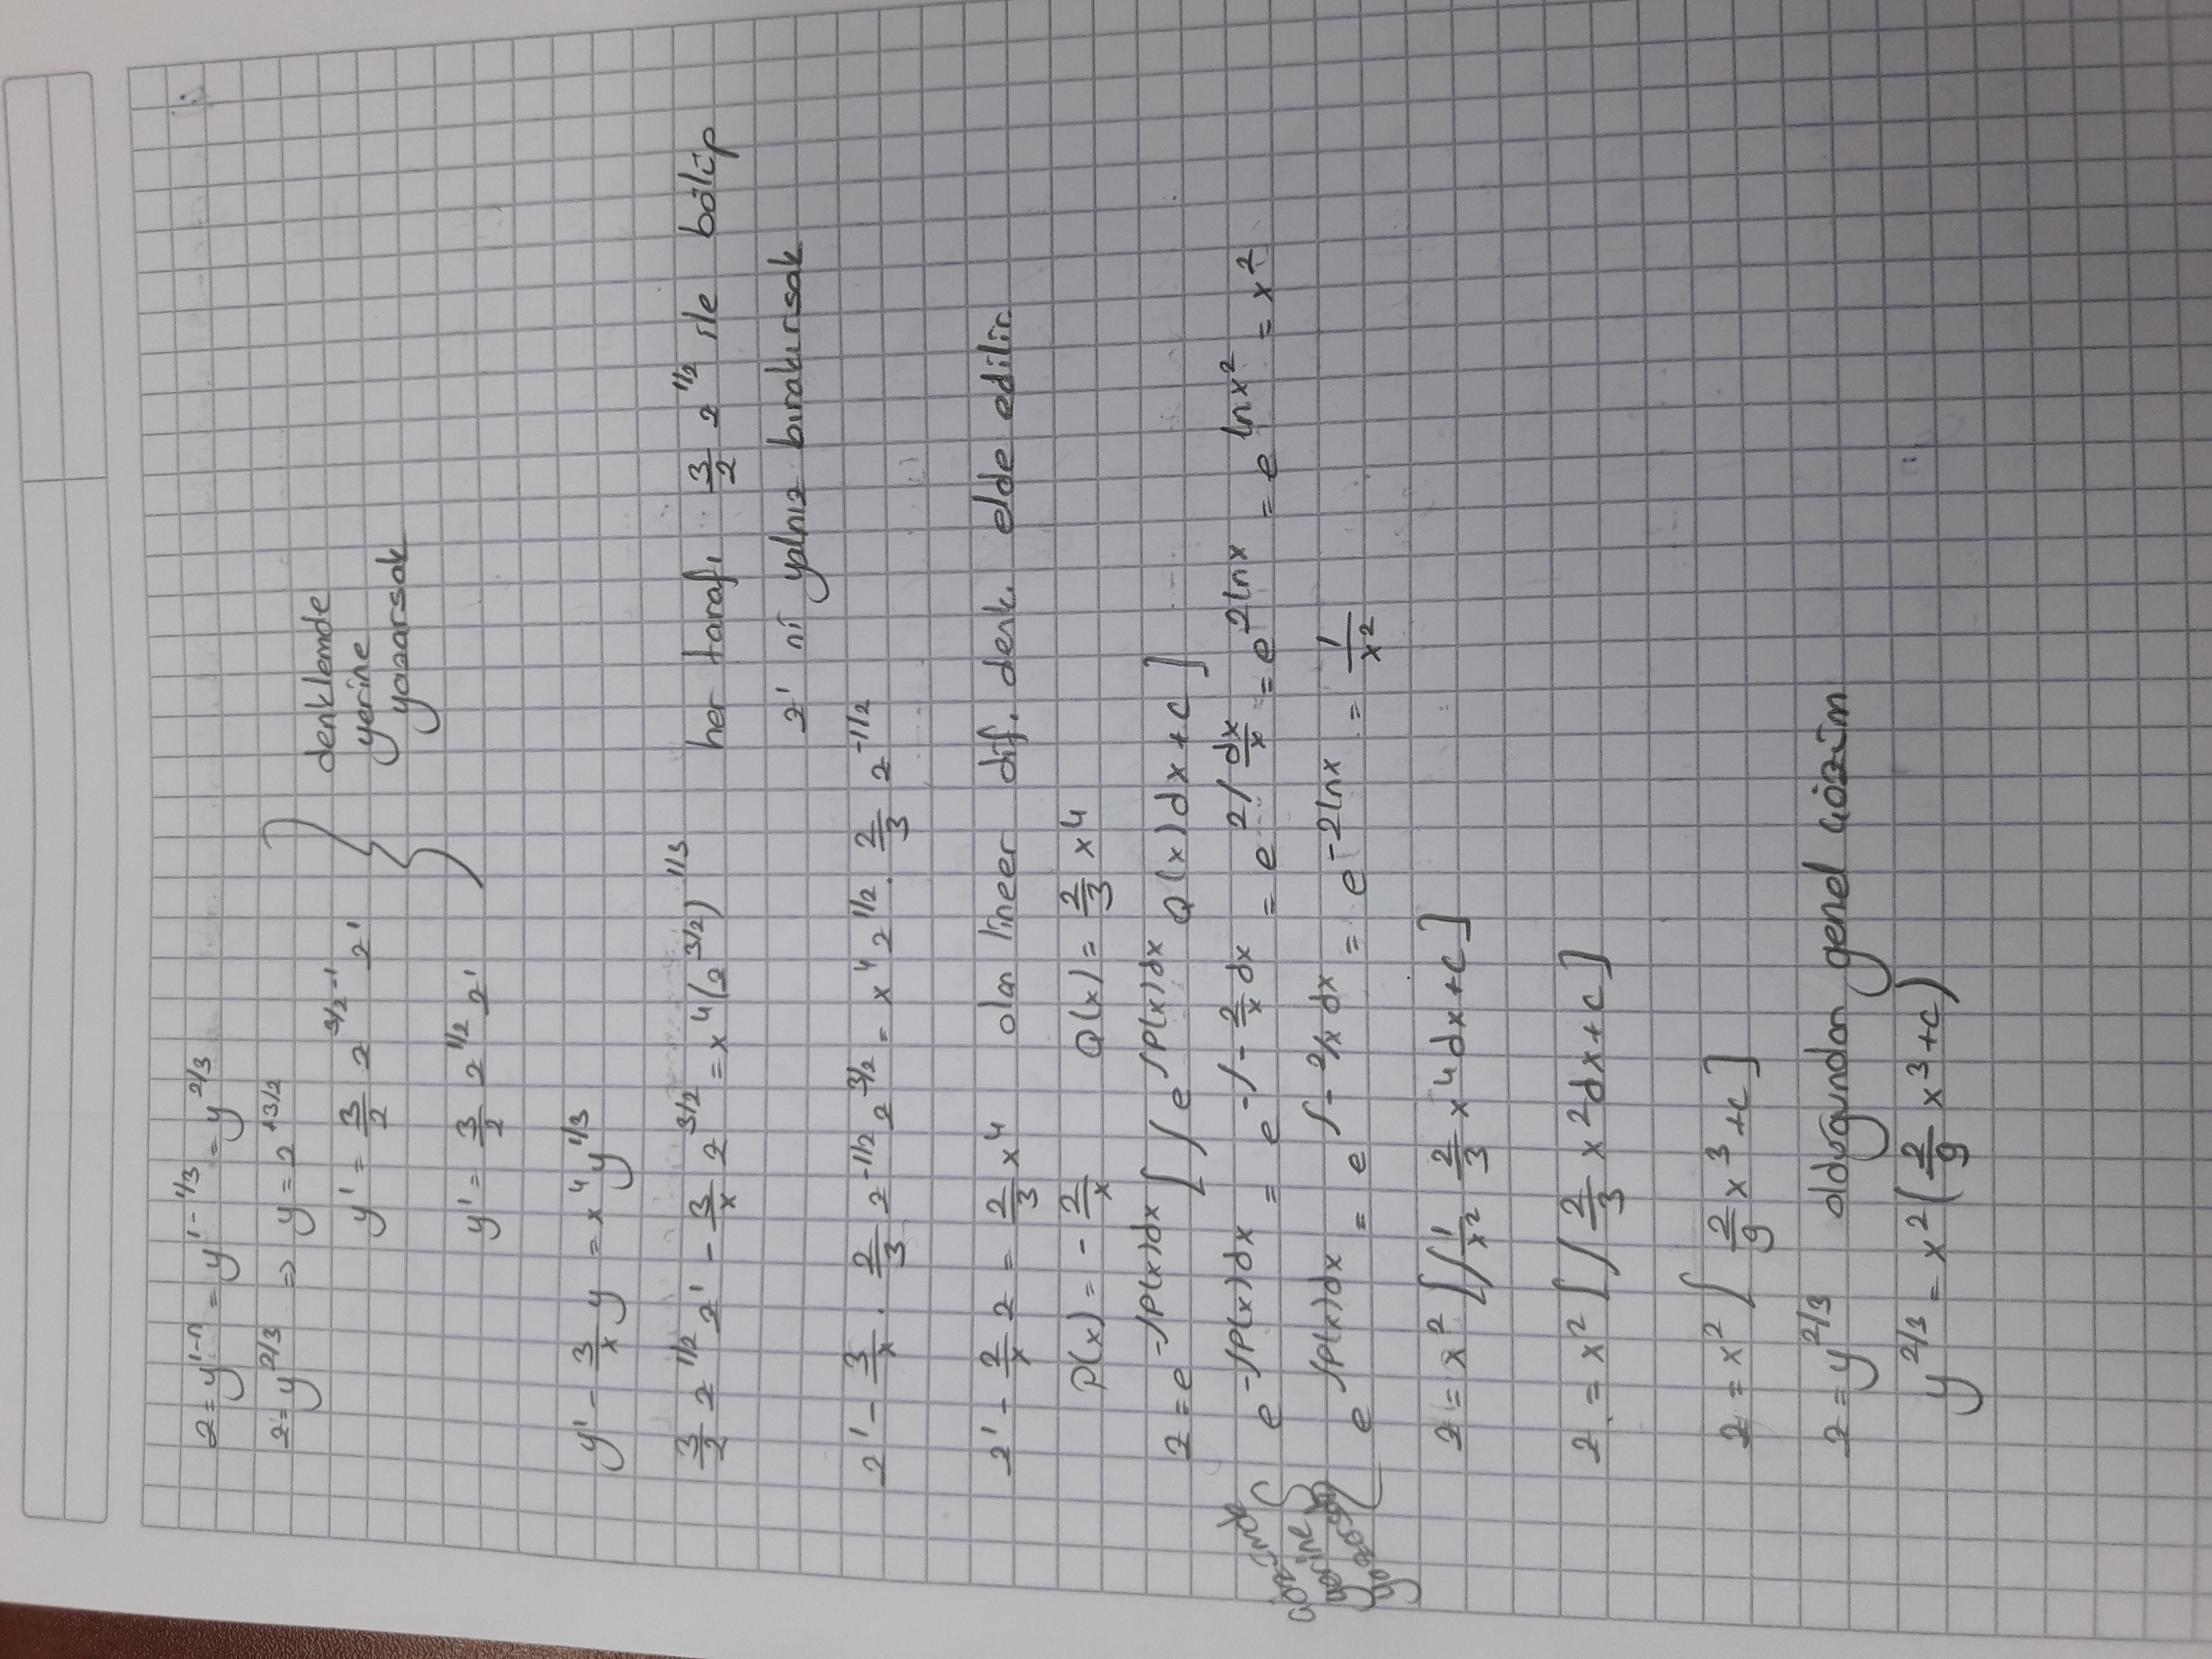 z = y^(1-n) = y^(1-1/3) = y^(2/3)
z = y^(2/3) ⇒ y = z^(+3/2)
y' = 3/2 z^(3/2-1) z'
denklemde
yerine
yazarsak
y' = 3/2 z^(1/2) z'
y' - 3/x y = x^4 y^(1/3)
3/2 z^(1/2) z' - 3/x z^(3/2) = x^4 (z^(3/2))^(1/3) her tarafı 3/2 z^(1/2) ile bölüp
z' ni yalnız bırakırsak
z' - 3/x · 2/3 z^(-1/2) z^(3/2) = x^4 z^(1/2) · 2/3 z^(-1/2)
z' - 2/x z = 2/3 x^4 olan lineer dif. denk. elde edilir.
P(x) = - 2/x Q(x) = 2/3 x^4
z = e^(-∫P(x)dx) [∫ e^(∫P(x)dx) Q(x)dx + c]
çözümde
yerine
yazarsak
e^(-∫P(x)dx) = e^(-∫-2/x dx) = e^(2∫dx/x) = e^(2lnx) = e^(lnx^2) = x^2
e^(∫P(x)dx) = e^(∫-2/x dx) = e^(-2lnx) = 1/x^2
z = x^2 [∫ 1/x^2 2/3 x^4 dx + c]
z = x^2 [∫ 2/3 x^2 dx + c]
z = x^2 [2/9 x^3 + c]
z = y^(2/3) olduğundan genel çözüm
y^(2/3) = x^2 (2/9 x^3 + c)